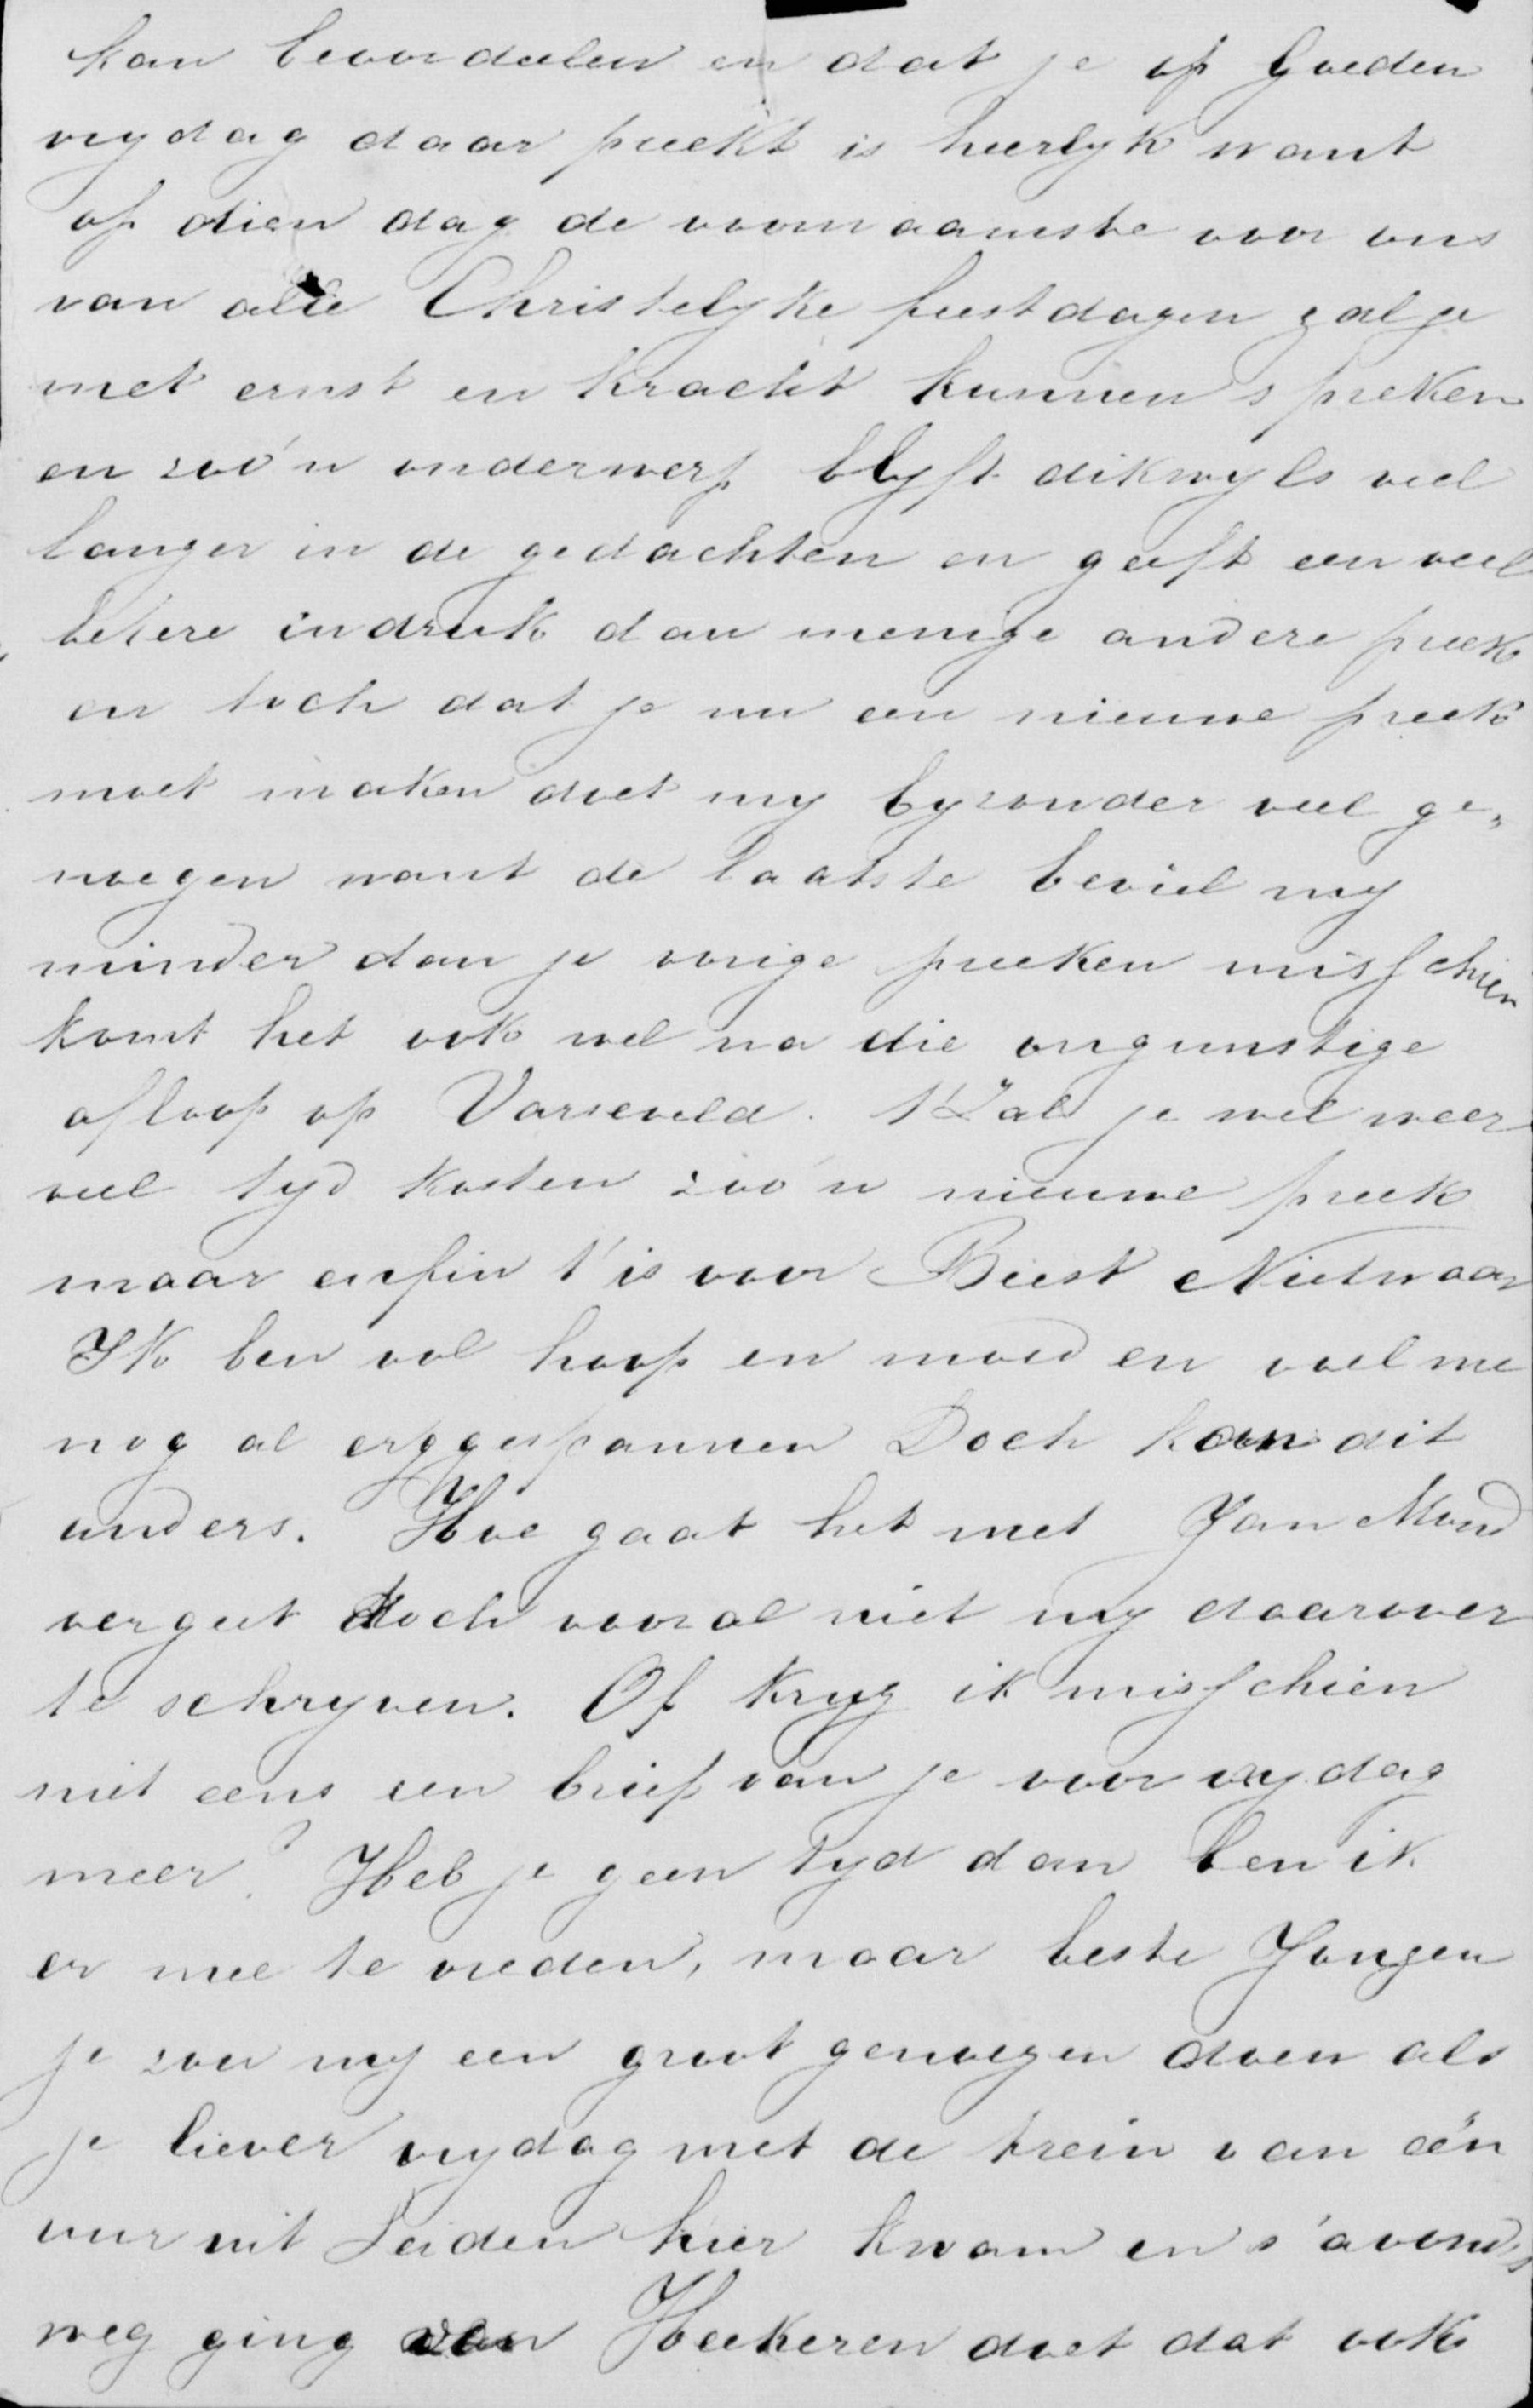 kan beoordeelen en dat je op Goeden
vrydag daar preekt is heerlyk want
op dien dag de voornaamste voor ons
van alle Christelyke feestdagen zal je
met ernst en kracht kunnen spreken
en zoo'n onderwerp blyft dikwyls veel
langer in de gedachten en geeft een veel
betere indruk dan menige andere preek
en toch dat je nu een nieuwe preek
moet maken doet my byzonder veel ge„
noegen want de laatste beviel my
minder dan je vorige preeken misschien
komt het ook wel na die ongunstige
afloop op Varseveld. 't Zal je wel weer
veel tyd kosten zoo'n nieuwe preek
maar enfin t'is voor Beest Nietwaar
Ik ben vol hoop en moed en voel me
nog al erg gespannen Doch kan dit
anders. Hoe gaat het met Jan Mond
vergeet toch vooral niet my daarover
te schryven. Of kryg ik misschien
niet eens een brief van je voor vrydag
meer? Heb je geen tyd dan ben ik
er mee te vreden, maar beste Jongen
je zou my een groot genoegen doen als
je liever vrydag met de trein van één
uur uit Leiden hier kwam en s'avonds
weg ging van Heekeren doet dat ook